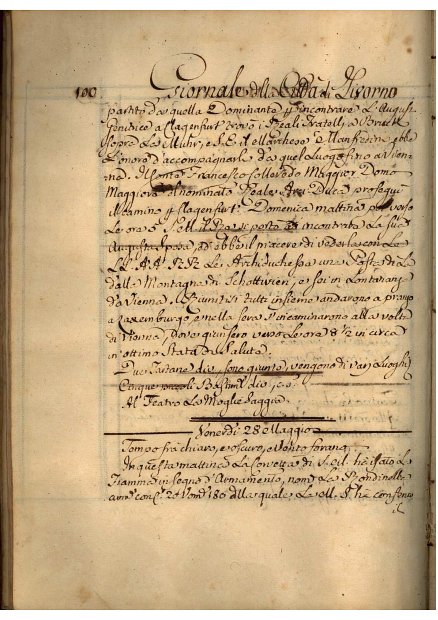 100 Giornale della Città di Livorno
partiti da quella Dominante p incontrare l'August
Genitrice a Clagenfurt trovò i Reali Fratelli a
sopra La Muhr, e S.E. il Marchese Manfredini ebbe
L'onore d'accompagnarli da quel Luogo fino a Vien
na. Il Conte Francesco Colloredo Maggior Domo
Maggiore nominato Reale Arci Duca proseguì
il camino p Clagenfurt. Domenica mattina verso
Le ore 5 S.M. il Rè si portò ad incontrare La Sua
Augusta Sposa ed ebbe il piacere di vederla con La
LL. AA. RR. Le Arciduchesse una Posta di La
dalla Montagna di Schottvien, e poi in Lontananza
da Vienna. Riuniti tutti insieme andarono a pranzo
a Laxemburgo e nella sera s'incaminarono alla volta
di Vienna, dove giunsero verso Le ore 8 1/2 in circa
in ottimo Stato di Salute.
Due Tartane div. sono giunte, vengono di varj Luoghi
Cinque piccoli Bastim.ti div. c.s.
Al Teatro La Moglie Saggia
Venerdì 28 Maggio
Tempo frà chiaro, e oscuro, e Vento forano
In questa mattina La Corvetta di S. M. hà issato La
Fiamma in segno d'Armamento, nom.ta La Rondinella
arm. con C. 24 Uom. 180 dalla quale La M. S. hà conferi